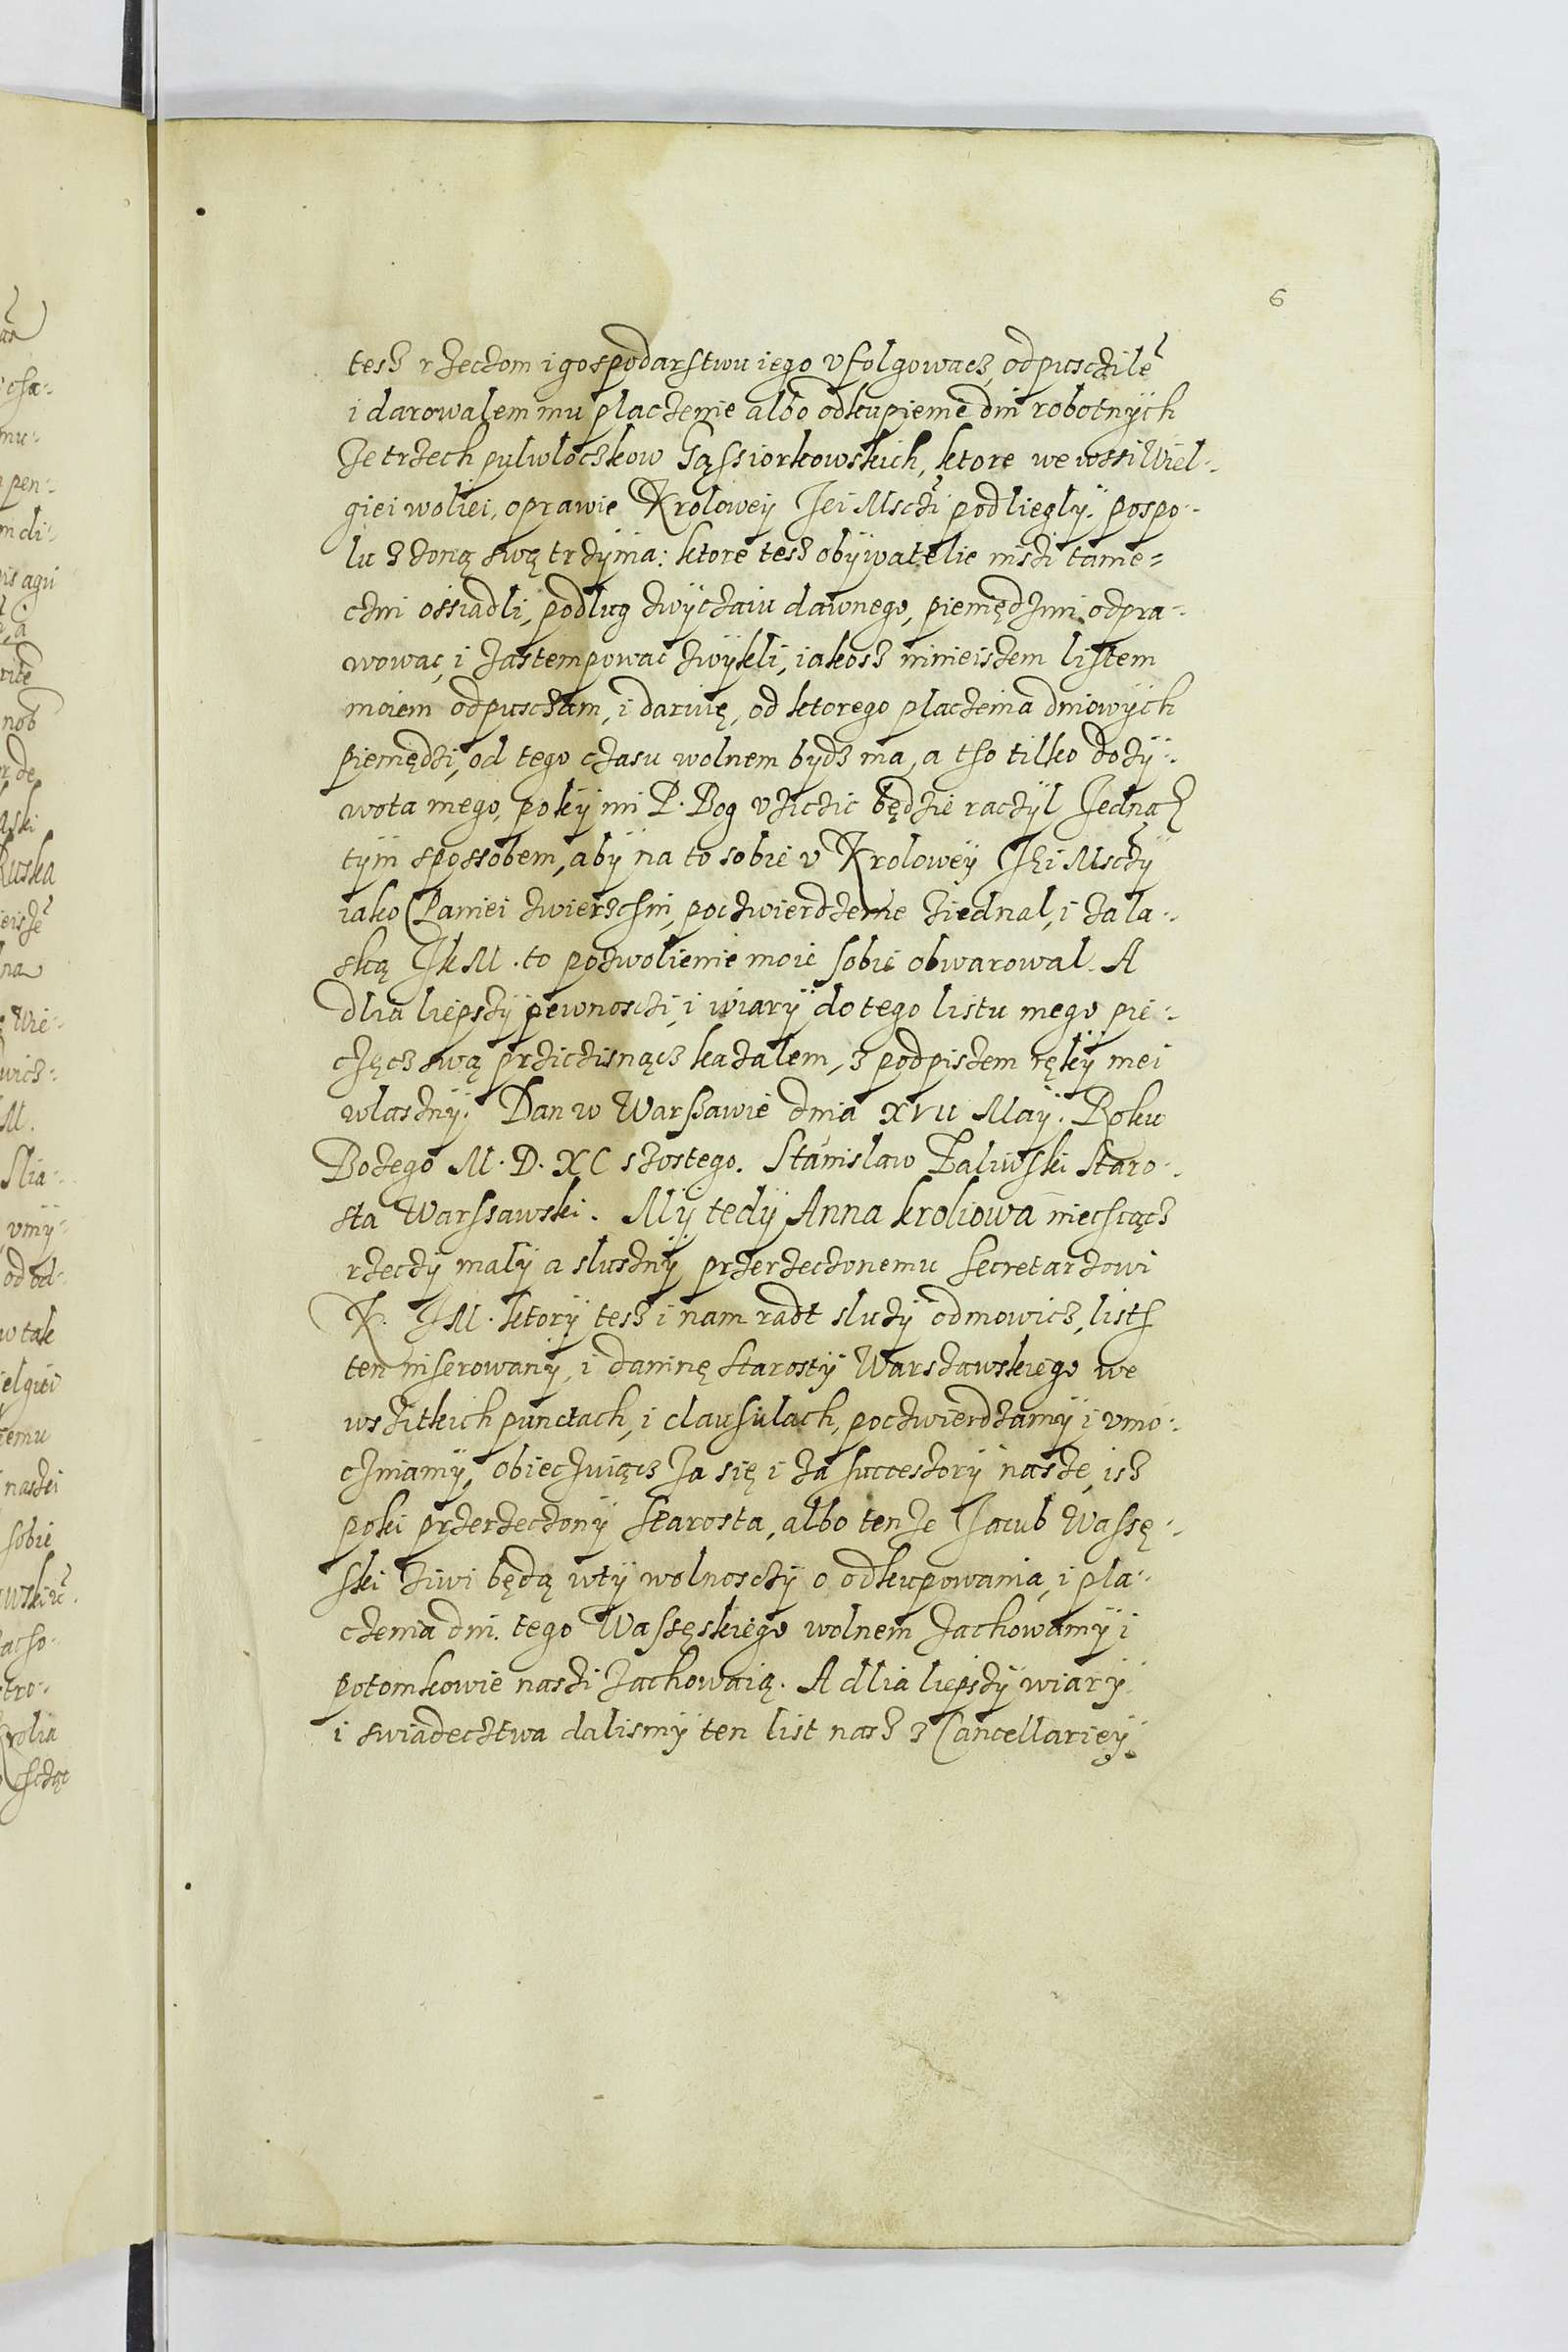 6
tesz rzeczom i gospodarstwu iego vfolgowacz, odpusczilẽ
i darowalem mu placzenie albo odkupienie dni robotnych
ze trzech pulwloczkow Gąssiorkowskich, ktore we wssi Wiel-
giei woliei, oprawie Krolowey Jei Msczi podliegly. pospo-
lu z zoną swą trzyma: ktore tesz obywatelie inszi tame-
czni ossiadli, podlug zwyczaiu dawnego, pieniędzmi odpra-
wowac, i zastempowac zwykli, iakosz ninieiszem listem
moiem odpusczam, i daruię, od ktorego placzenia dniowych
pieniędzi, od tego czasu wolnem bydz ma, a tso tilko dozy-
wota mego, poky mi P. Bog vziczic będzie raczyl Jednąk
tym spossobem, aby na to sobie v Krolowey Jei Msczy
iako Paniei zwierzchni, poczwierdzenie ziednal, i za la-
ską JKM. to pozwolienie moie sobie obwarowal. A
dlia liepszy pewnosczi, i wiary do tego listu mego pie-
częcz swą prziczisnącz kazalem, z podpiszem ręky mei
wlaszny. Dan w Warssawie dnia XVII May. Roku
Bozego M.D.XC szostego. Stanislaw Zaliwski Staro-
sta Warssawski. My tedy Anna kroliowa niechcącz
rzeczy maly a sluszny przerzeczonemu Secretarzowi
K. JM. ktory tesz i nam radt sluzy odmowicz, list
ten inserowany, i daninę Starosty Warszawskiego we
wszitkich punctach, i clausulach, poczwierdzamy i vmo-
czniamy, obieczuiącz za się i za successory nasze, isz
poki przerzeczony Starosta, albo tenze Jacub Wassę-
ski ziwi będą w ty wolnosczy o odkupowania, i pla-
czenia dni. tego Wassęskiego wolnem zachowamy i
potomkowie naszi zachowaią. A dlia liepszy wiary
i swiadecztwa dalismy ten list nasz z Cancellariey